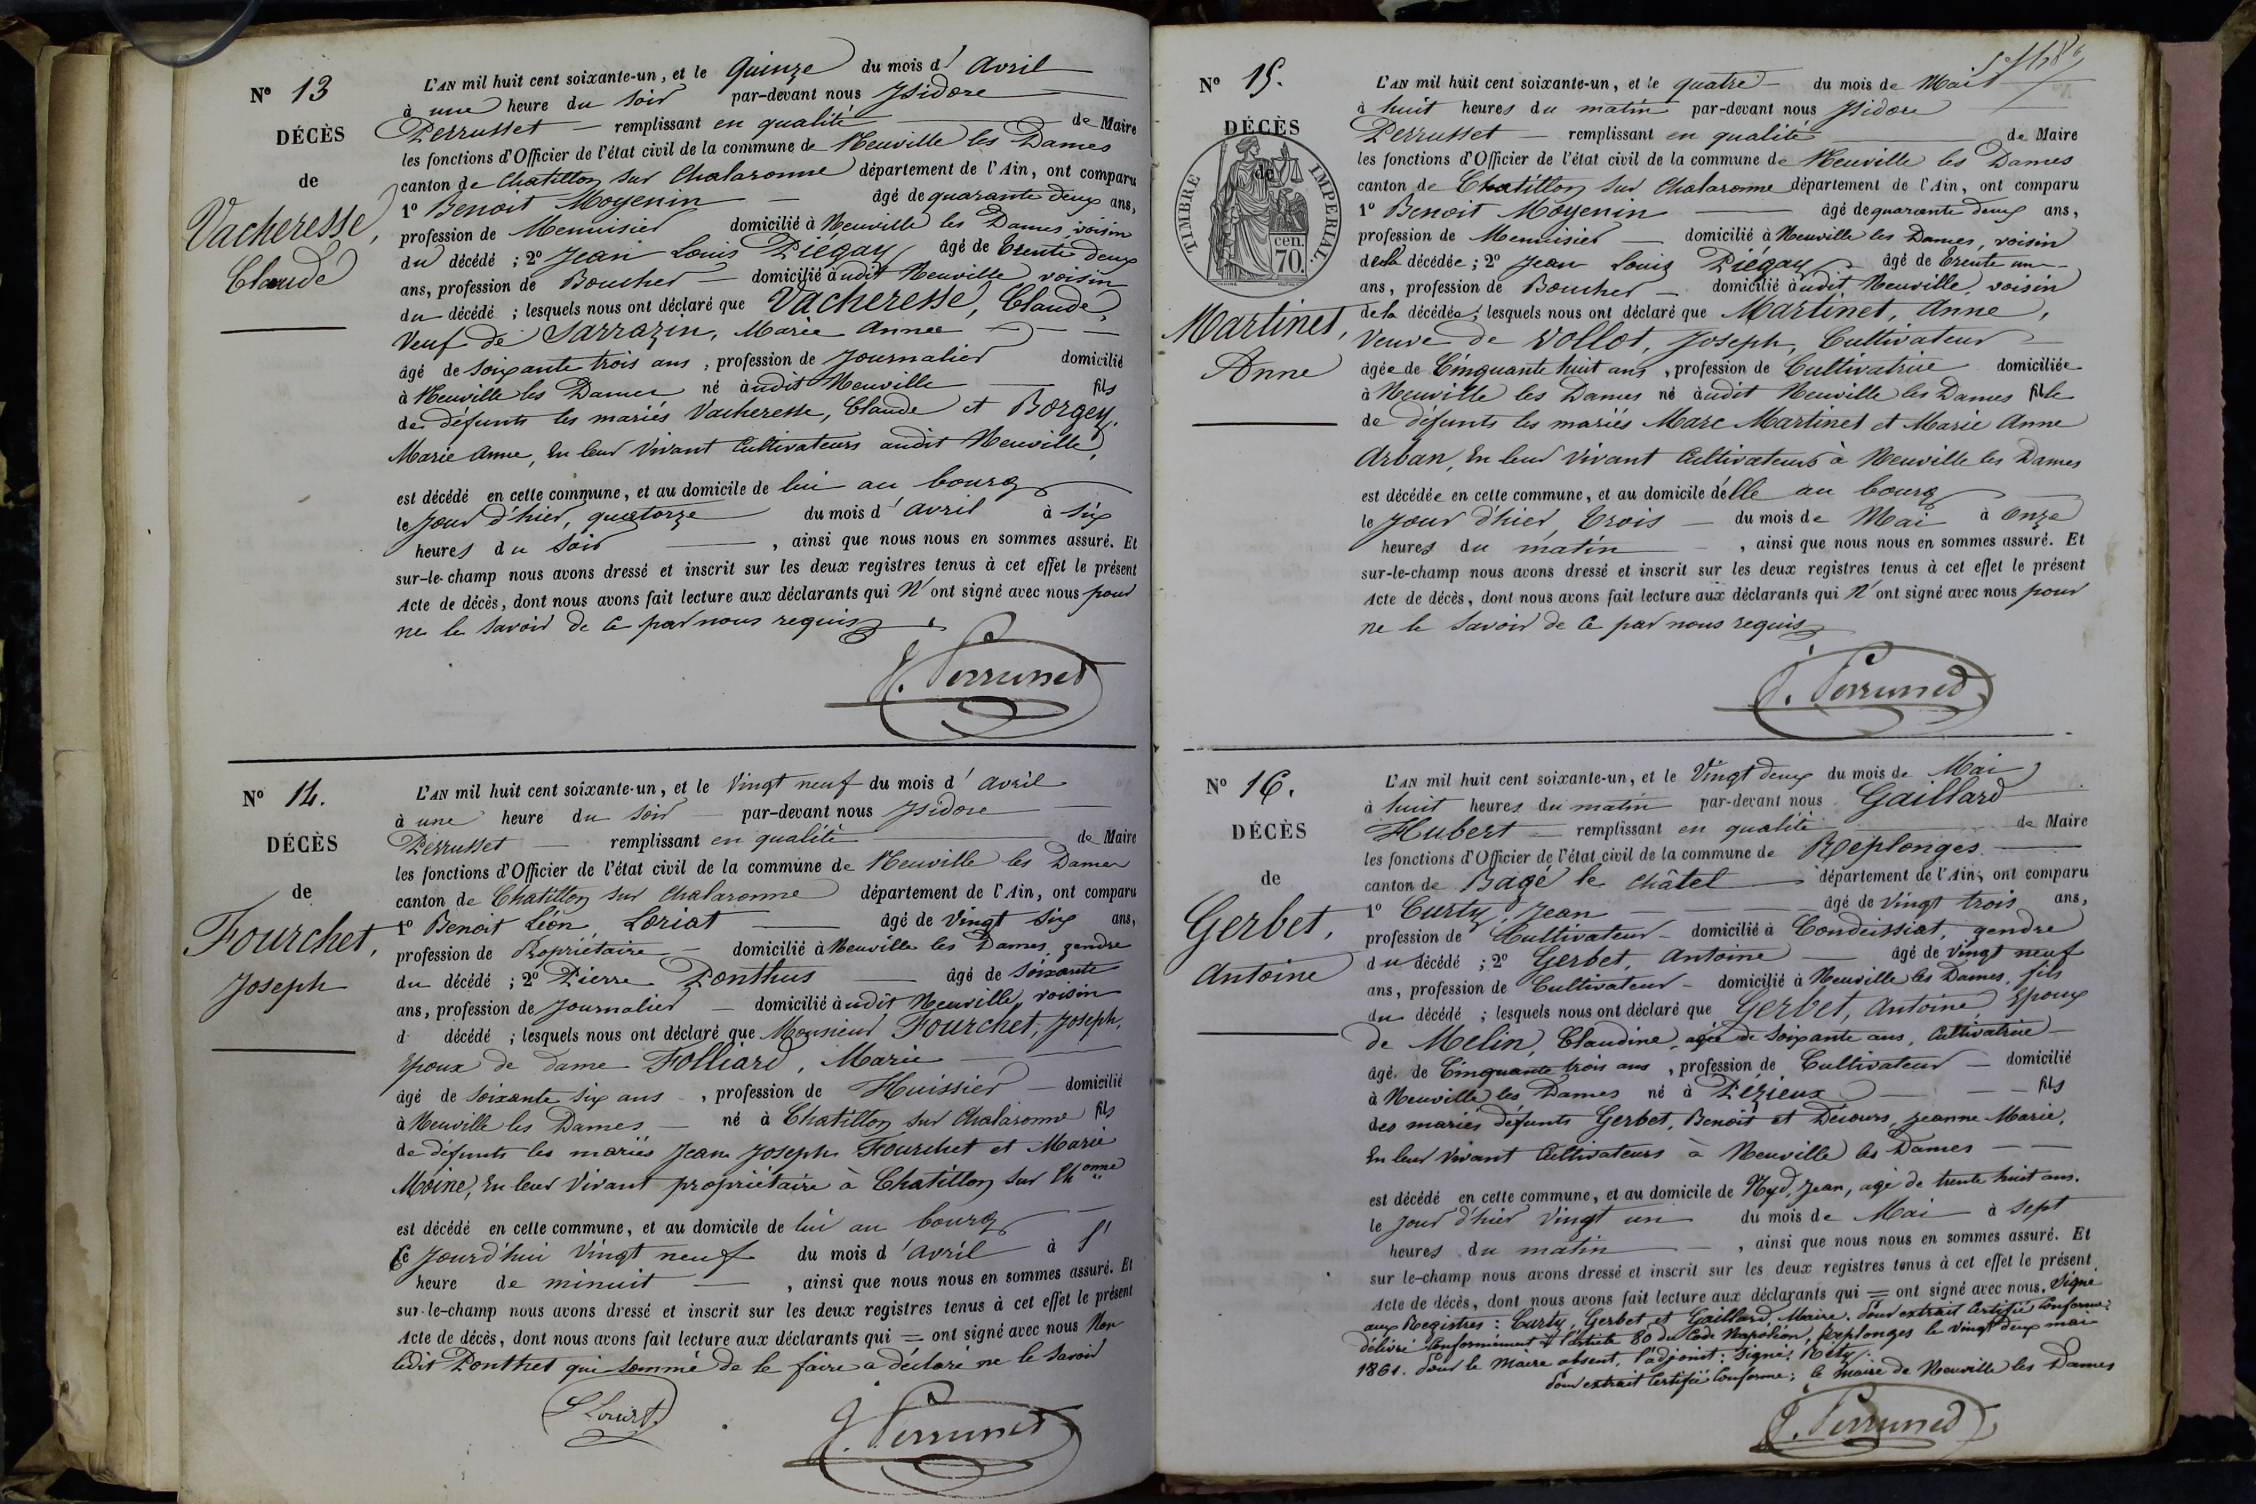 N° 13
DÉCÈS
de
Vacheresse,
Claude
L'AN mil huit cent soixante-un, et le Quinze du mois d' Avril
à une heure du soir par-devant nous Isidore
Perrusset remplissant en qualité de Maire
les fonctions d'Officier de l'état civil de la commune de Neuville les Dames
canton de Chatillon sur Chalaronne département de l'Ain, ont comparu
1° Benoit Moyenin âgé de quarante deux ans,
profession de Menuisier domicilié à Neuville les Dames, voisin
du décédé ; 2° Jean Louis Piégay âgé de trente deux
ans, profession de Boucher domicilié audit Neuville voisin
du décédé ; lesquels nous ont déclaré que Vacheresse, Claude,
Veuf de Sarrazin, Marie Anne
âgé de soixante trois ans, profession de Journalier domicilié
à Neuville les Dames né audit Neuville fils
de défunts les mariés Vacheresse, Claude et Borgey,
Marie Anne, En leur Vivant Cultivateurs audit Neuville,
est décédé en cette commune, et au domicile de lui au bourg
le jour d'hier, quatorze du mois d'avril à six
heures du soir, ainsi que nous nous en sommes assuré. Et
sur-le-champ nous avons dressé et inscrit sur les deux registres tenus à cet effet le présent
Acte de décès, dont nous avons fait lecture aux déclarants qui N'ont signé avec nous pour
ne le savoir de ce par nous requis
J. Perrusset
N° 14.
DÉCÈS
de
Fourchet,
Joseph
L'AN mil huit cent soixante-un, et le Vingt neuf du mois d' Avril
à une heure du soir par-devant nous Isidore
Perrusset remplissant en qualité de Maire
les fonctions d'Officier de l'état civil de la commune de Neuville les Dames
canton de Chatillon sur Chalaronne département de l'Ain, ont comparu
1° Benoit Léon Loriat âgé de Vingt six ans,
profession de Propriétaire domicilié à Neuville les Dames, gendre
du décédé ; 2° Pierre Ponthus âgé de soixante
ans, profession de Journalier domicilié audit Neuville, voisin
d décédé ; lesquels nous ont déclaré que Monsieur Fourchet, Joseph,
Epoux de dame Folliard, Marie
âgé de soixante six ans, profession de Huissier domicilié
à Neuville les Dames né à Chatillon sur Chalaronne fils
de défunts les mariés Jean Joseph Fourchet et Marie
Moine, En leur Vivant propriétaire à Chatillon sur Chonne
est décédé en cette commune, et au domicile de lui au bourg
Ce jourd'hui Vingt neuf du mois d'avril à l'
heure de minuit, ainsi que nous nous en sommes assuré. Et
sur-le-champ nous avons dressé et inscrit sur les deux registres tenus à cet effet le présent
Acte de décès, dont nous avons fait lecture aux déclarants qui = ont signé avec nous Non
ledit Ponthet qui sommé de le faire a déclaré ne le savoir
J. Perrusset
N° 15.
DÉCÈS
de
TIMBRE IMPERIAL.
70 cen.
Martinet,
Anne
L'AN mil huit cent soixante-un, et le quatre du mois de Mai
à huit heures du matin par-devant nous Isidore
Perrusset remplissant en qualité de Maire
les fonctions d'Officier de l'état civil de la commune de Neuville les Dames
canton de Chatillon sur Chalaronne département de l'Ain, ont comparu
1° Benoit Moyenin âgé de quarante deux ans,
profession de Menuisier domicilié à Neuville les Dames, voisin
de la décédée ; 2° Jean Louis Piégay âgé de trente un
ans, profession de Boucher domicilié audit Neuville, voisin
de la décédée ; lesquels nous ont déclaré que Martinet, Anne,
Veuve de Vollot, Joseph, Cultivateur
âgée de Cinquante huit ans, profession de Cultivatrice domiciliée
à Neuville les Dames né audit Neuville les Dames fille
de défunts les mariés Marc Martinet et Marie Anne
Arban, En leur Vivant Cultivateurs à Neuville les Dames
est décédée en cette commune, et au domicile d'elle au bourg
le jour d'hier, trois du mois de Mai à onze
heures du matin, ainsi que nous nous en sommes assuré. Et
sur-le-champ nous avons dressé et inscrit sur les deux registres tenus à cet effet le présent
Acte de décès, dont nous avons fait lecture aux déclarants qui N'ont signé avec nous pour
ne le savoir de ce par nous requis
J. Perrusset
N° 16.
DÉCÈS
de
Gerbet,
Antoine
L'AN mil huit cent soixante-un, et le Vingt deux du mois de Mai
à huit heures du matin par-devant nous Gaillard
Hubert remplissant en qualité de Maire
les fonctions d'Officier de l'état civil de la commune de Replonges
canton de Bagé le châtel département de l'Ain, ont comparu
1° Curty, Jean âgé de Vingt trois ans,
profession de Cultivateur domicilié à Condeissiat, gendre
du décédé ; 2° Gerbet, Antoine âgé de Vingt neuf
ans, profession de Cultivateur domicilié à Neuville les Dames, fils
du décédé ; lesquels nous ont déclaré que Gerbet, Antoine, Epoux
de Melin, Claudine, agée de soixante ans, Cultivatrice
âgé de Cinquante trois ans, profession de Cultivateur domicilié
à Neuville les Dames né à Pézieux fils
des mariés défunts Gerbet, Benoit et Décours, Jeanne Marie,
En leur Vivant Cultivateurs à Neuville les Dames
est décédé en cette commune, et au domicile de Nyd, Jean, agé de trente huit ans.
le jour d'hier Vingt un du mois de Mai à sept
heures du matin, ainsi que nous nous en sommes assuré. Et
sur le-champ nous avons dressé et inscrit sur les deux registres tenus à cet effet le présent
Acte de décès, dont nous avons fait lecture aux déclarants qui = ont signé avec nous. Signé
aux Registres : Curty, Gerbet et Gaillard, Maire. Pour extrait Certifié Conforme :
délivré Conformément à l'article 80 du Code Napoléon, Replonges le vingt deux mai
1861. Pour le Maire absent, l'adjoint : signé : Réty.
Pour extrait Certifié Conforme ; le maire de Neuville les Dames
J. Perrusset